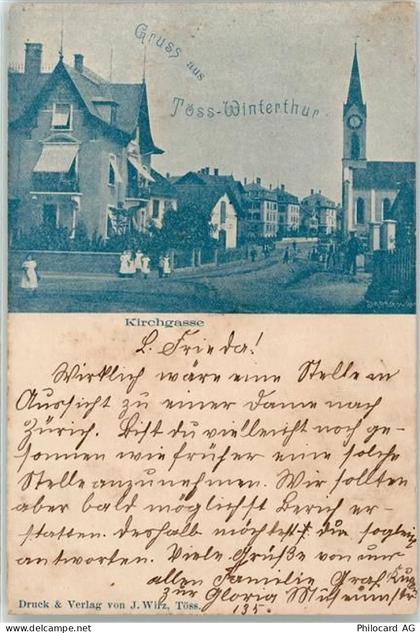 Gruss aus
Töss-Winterthur
Kirchgasse
L. Frieda!
Wirklich wäre eine Stelle in
Aussicht zu einer Dame nach
Zürich. Bist du vielleicht noch ge-
sonnen wie früher eine solche
Stelle anzunehmen. Wir sollten
aber bald möglichst Bericht er-
statten. deshalb möchtest du sogleich
antworten. Viele Grüße von uns
allen Familie Graf
zur Gloria
135.
Druck & Verlag von J. Wirz, Töss.
www.delcampe.net
philocard
Photo Card © Philocard AG